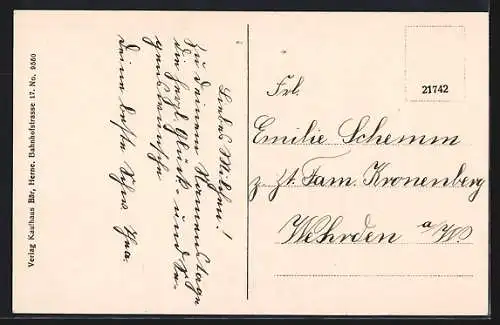 Verlag Kaufhaus Bär, Herne, Bahnhofstrasse 17. No. 9550
Liebes Milchen!
Zu deinem Namenstage
die herzl. Glück- und Se-
genswünsche
deine beste Schw.
21742
Frl.
Emilie Schemm
z. Zt. Fam. Kronenberg
Wehrden a/W.